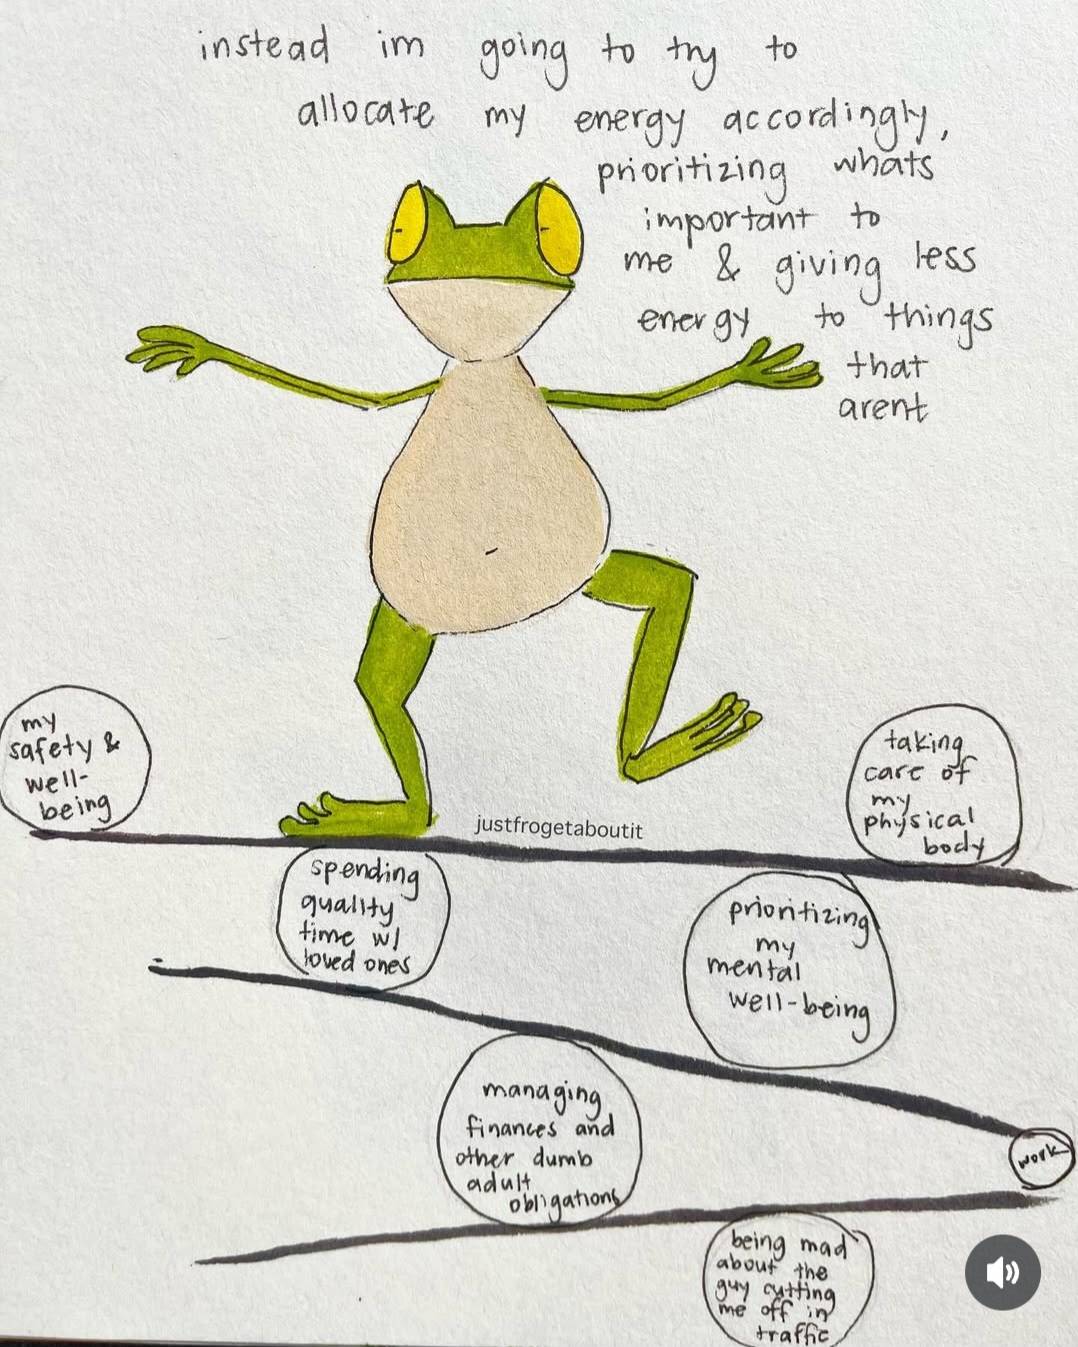 instead im going to try to
allocate my energy accordingly,
prioritizing whats
important to
me & giving less
energy to things
that
arent
my
safety &
well-
being
justfrogetaboutit
taking
care of
my
physical
body
spending
quality
time w/
loved ones
prioritizing
my
mental
well-being
managing
finances and
other dumb
adult
obligations
work
being mad
about the
guy cutting
me off in
traffic